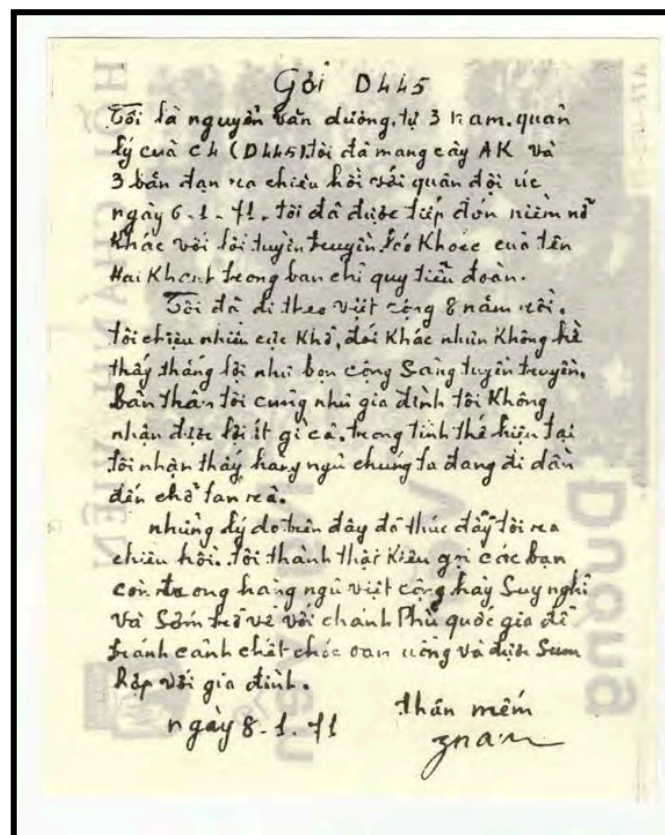 Gởi D445
Tôi là nguyễn văn dường, tự 3 nam, quản
lý cuả C4 (D445). tôi đã mang cây AK và
3 bắn đạn ra chiêu hồi với quân đội úc
ngày 6-1-71. tôi đã được tiếp đón niềm nở
khác với lời tuyên truyền láo khoéc cuả tên
Hai Khanh trong ban chỉ quy tiểu đoàn.
Tôi đã đi theo việt cộng 8 năm rồi.
tôi chịu nhiều cực khổ, đói khác nhưn không hề
thấy thắng lợi như bọn cộng Sảng tuyên truyền.
bản thân tôi cung như gia đình tôi không
nhận được lợi ít gì cả. trong tình thế hiện tại
tôi nhận thấy hàng ngủ chúng ta đang đi dần
đến chổ tan rả.
những lý do trên đây đã thúc đẩy tôi ra
chiêu hồi. tôi thành thật kiêu gọi các bạn
còn trong hàng ngủ việt cộng hảy Suy nghỉ
và Sớm trở về với chánh Phủ quốc gia để
tránh cảnh chết chóc oan uổng và được Sum
hộp với gia đình.
ngày 8-1-71
thân mếm
3nam
HỒI CHÁNH VIÊN
Dường